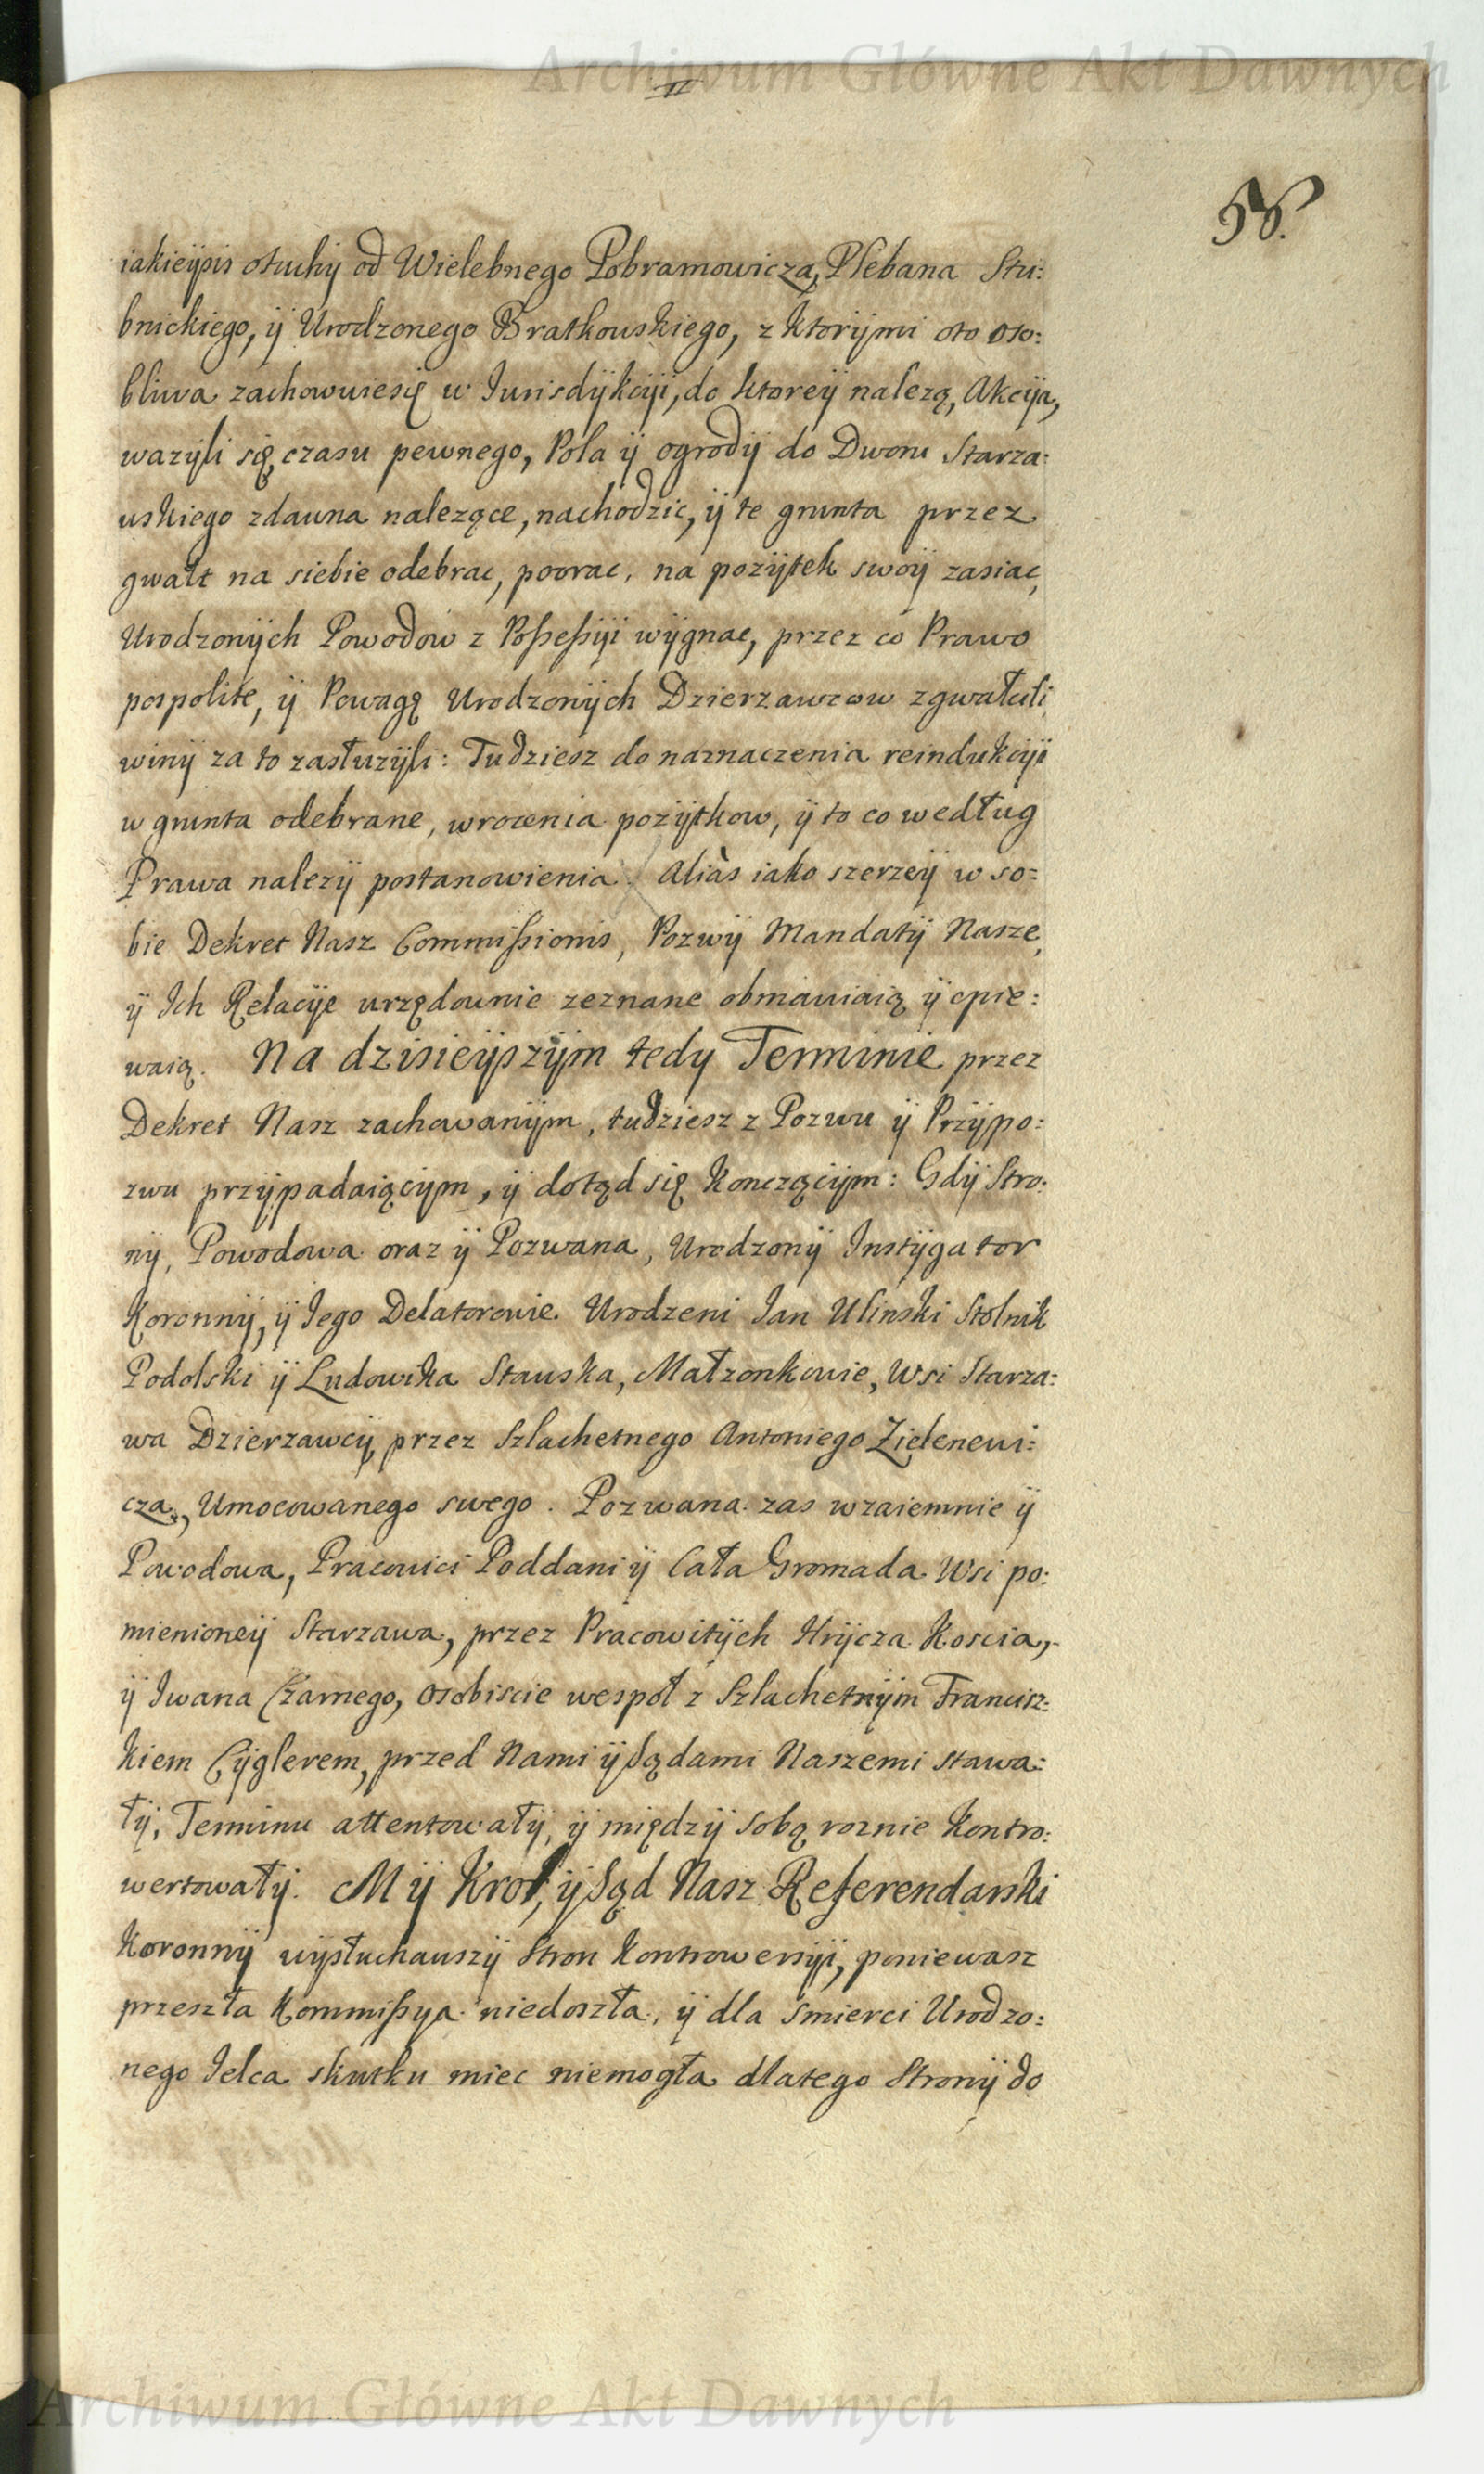 Archiwum Główne Akt Dawnych
58.
iakieÿsis otuchÿ od Wielebnego Pobramowicza, Plebana Stu:
bnickiego, ÿ Urodzonego Bratkowskiego, z ktorÿmi oto oso:
bliwa zachowuiesię w Iurisdÿkcÿi, do ktoreÿ nalezą, Akcÿa,
wazÿli się czasu pewnego, Pola ÿ ogrodÿ do Dworu Starza:
wskiego zdawna nalezące, nachodzic, ÿ te grunta przez
gwałt na siebie odebrac, poorac, na pozÿtek swoÿ zasiac,
Urodzonÿch Powodow z Poßeßÿi wÿgnac, przez co Prawo
pospolite, ÿ Powagę Urodzonÿch Dzierzawcow zgwałcili
winÿ za to zasłuzÿli: Tudziesz do naznaczenia reindukcÿi
w grunta odebrane, wrocenia pozÿtkow, ÿ to co według
Prawa nalezÿ postanowienia. Aliàs iako szerzeÿ w so=
bie Dekret Nasz Commißionis, Pozwÿ Mandatÿ Nasze,
ÿ Ich Relacÿe urzędownie zeznane obmawiaią ÿ opie:
waią. Na dzisieÿszÿm tedy Terminie przez
Dekret Nasz zachowanÿm, tudziesz z Pozwu ÿ Przÿpo:
zwu przÿpadaiącÿm, ÿ dotąd się konczącÿm: Gdÿ Stro:
nÿ, Powodowa oraz ÿ Pozwana, Urodzonÿ Instÿgator
Koronnÿ, ÿ Iego Delatorowie. Urodzeni Ian Ulinski Stolnik
Podolski ÿ Ludowika Stawska, Małzonkowie, Wsi Starza:
wa Dzierzawcÿ przez Szlachetnego Antoniego Zielenewi:
cza, Umocowanego swego. Pozwana zas wzaiemnie ÿ
Powodowa, Pracowici Poddani ÿ Cała Gromada Wsi po:
mienioneÿ Starzawa, przez Pracowitÿch Hrÿcza Koscia,
ÿ Iwana Czarnego, osobiscie wespoł z Szlachetnÿm Francisz:
kiem Cÿglerem, przed Nami ÿ Sądami Naszemi stawa:
łÿ, Terminu attentowałÿ, ÿ międzÿ sobą roznie kontro:
wertowałÿ. Mÿ Krol, ÿ Sąd Nasz Referendarski
Koronnÿ wÿsłuchawszÿ Stron kontrowersÿi, poniewasz
przeszła Kommißya niedoszła, ÿ dla smierci Urodzo:
nego Ielca skutku miec niemogła dlatego Stronÿ do
Archiwum Główne Akt Dawnych